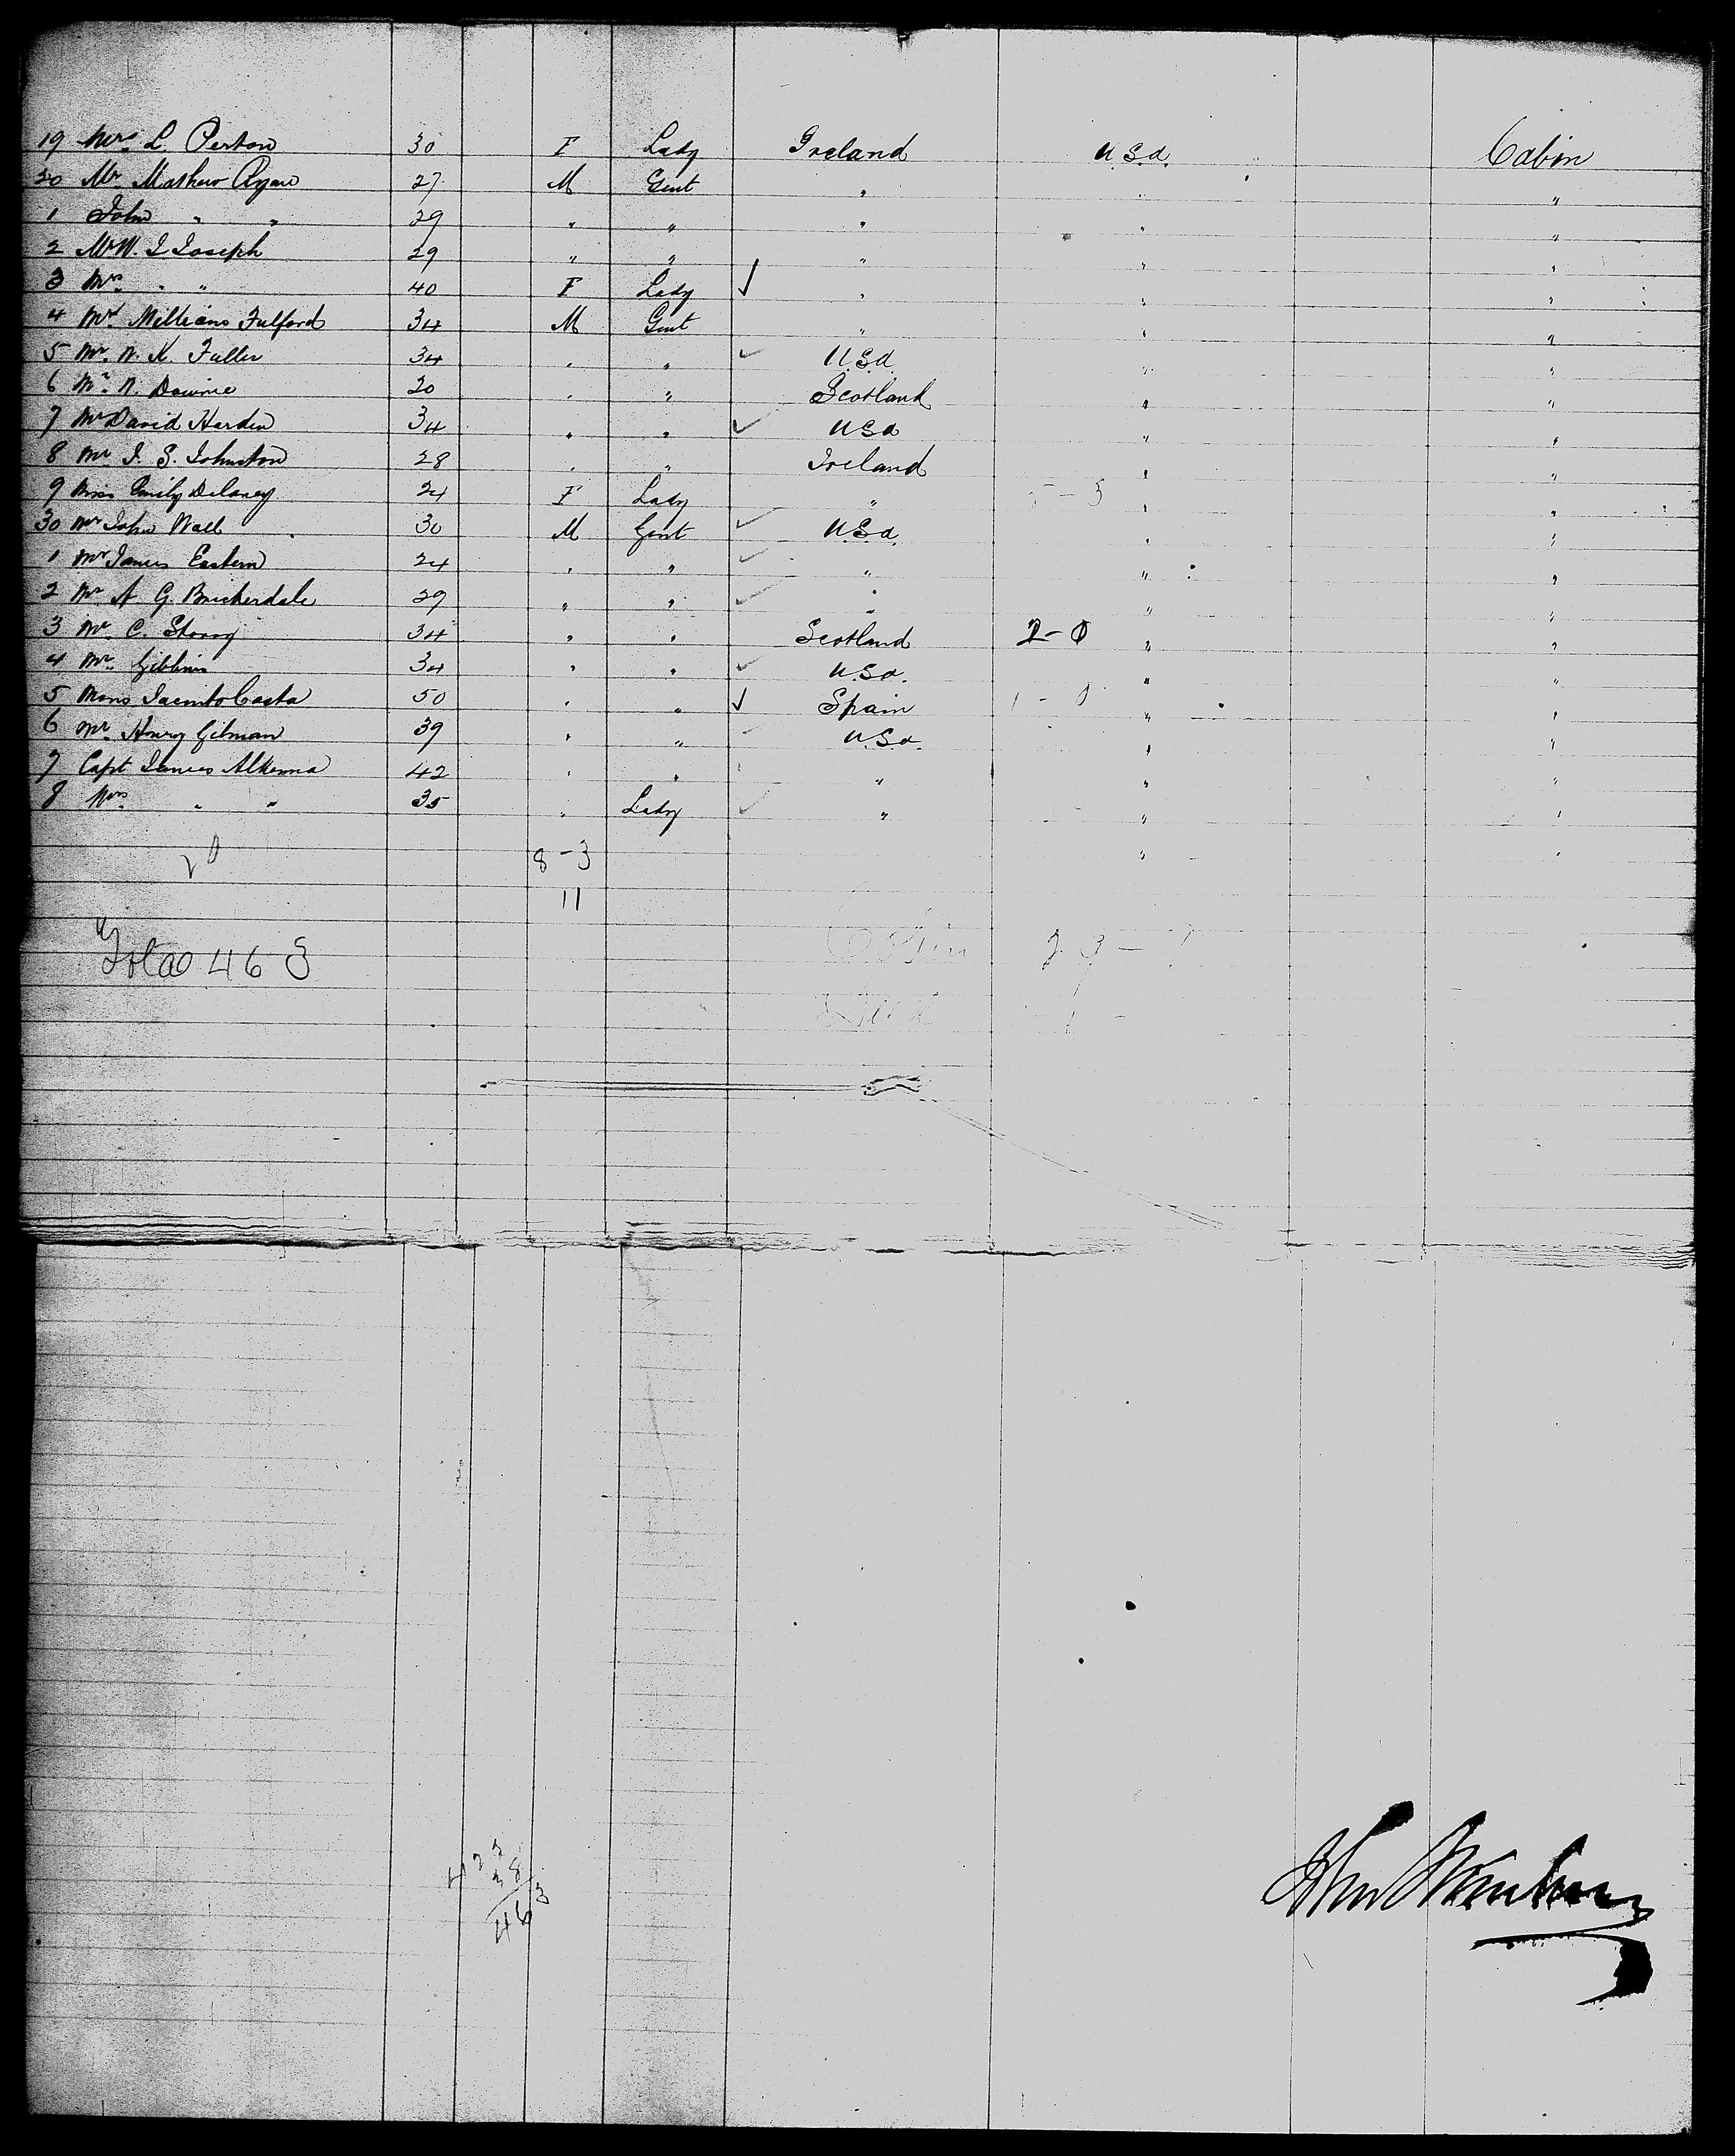 19 Mrs L. Perton 30 F Lady Ireland U.S.a. Cabin
20 Mr Mathew Ryan 27 M Gent " " "
1 John " " 29 " " " " "
2 Mr W. I Joseph 29 " " " " "
3 Mrs " " 40 F Lady ✓ " " "
4 Mr Fulford 34 M Gent " " "
5 Mr. Fuller 34 " " ✓ U.S.a " "
6 Mr. Downie 20 " " Scotland " "
7 Mr David Harden 34 " " ✓ U.S.a " "
8 Mr I. S. Johnston 28 " " Ireland " "
9 Miss Emily Delaney 24 F Lady " " "
30 Mr John Wall 30 M Gent ✓ U.S.a. " "
1 Mr James Eastern 24 " " ✓ " " "
2 Mr A. G. Brickerdale 29 " " ✓ " " "
3 Mr. C. 34 " " Scotland 2-0 " "
4 Mr. Gibbins 34 " " ✓ U.S.a. " "
5 Mons Jacinto Costa 50 " " ✓ Spain 1-0 " "
6 Mr. Henry Gilman 39 " " ✓ U.S.a. " "
7 Capt James 42 " " " " "
8 Mrs " " 35 " Lady ✓ " " "
8-3 " "
11
Total 463
38
463
John